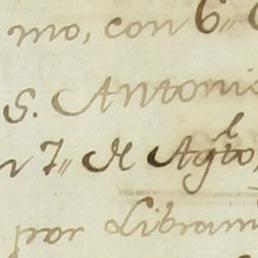 mo, con 6„
S. Antonio
7„ de Agto,
por Libram